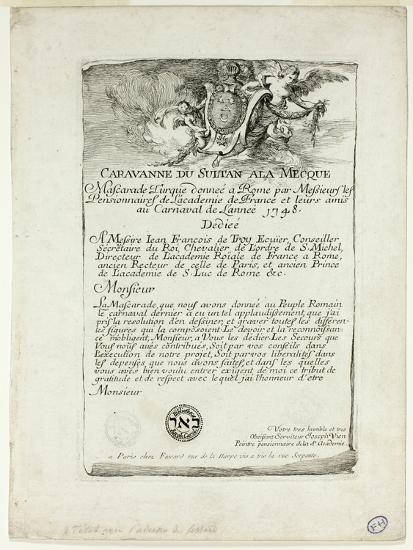 CARAVANNE DU SULTAN A LA MECQUE
Mascarade Turque donneé a Rome par Messieurs les
Pensionnaires de L'academie de France et leurs amis
au Carnaval de L'anneé 1748.
Dedieé
A Messire Jean François de Troy Ecuier, Conseiller
Secretaire du Roi, Chevalier de l'ordre de S. Michel,
Directeur de L'academie Roiale de France a Rome,
ancien Recteur de celle de Paris, et ancien Prince
de L'academie de S. Luc de Rome &c.
Monsieur
La Mascarade que nous avons donneé au Peuple Romain
le carnaval dernier a eu un tel applaudissement, que j'ai
pris la resolution d'en dessiner, et graver toutes les differen-
tes figures qui la composoient. Le devoir et la reconnoissan-
ce m'obligent, Monsieur, a Vous les dedier. Les Secours que
Vous nous avés contribués, Soit par vos conseils dans
l'execution de notre projet, Soit par vos liberalités dans
les depenses que nous avons faites, et dans les quelles
vous avés bien voulu entrer exigent de moi ce tribut de
gratitude et de respect avec le quel j'ai l'honneur d'etre
Monsieur
Votre tres humble et tres
Obeissant Serviteur Joseph Vien
Peintre pensionnaire de la d.e Academie.
a Paris chez Favard rue de la Harpe vis a vis la rue Serpente.